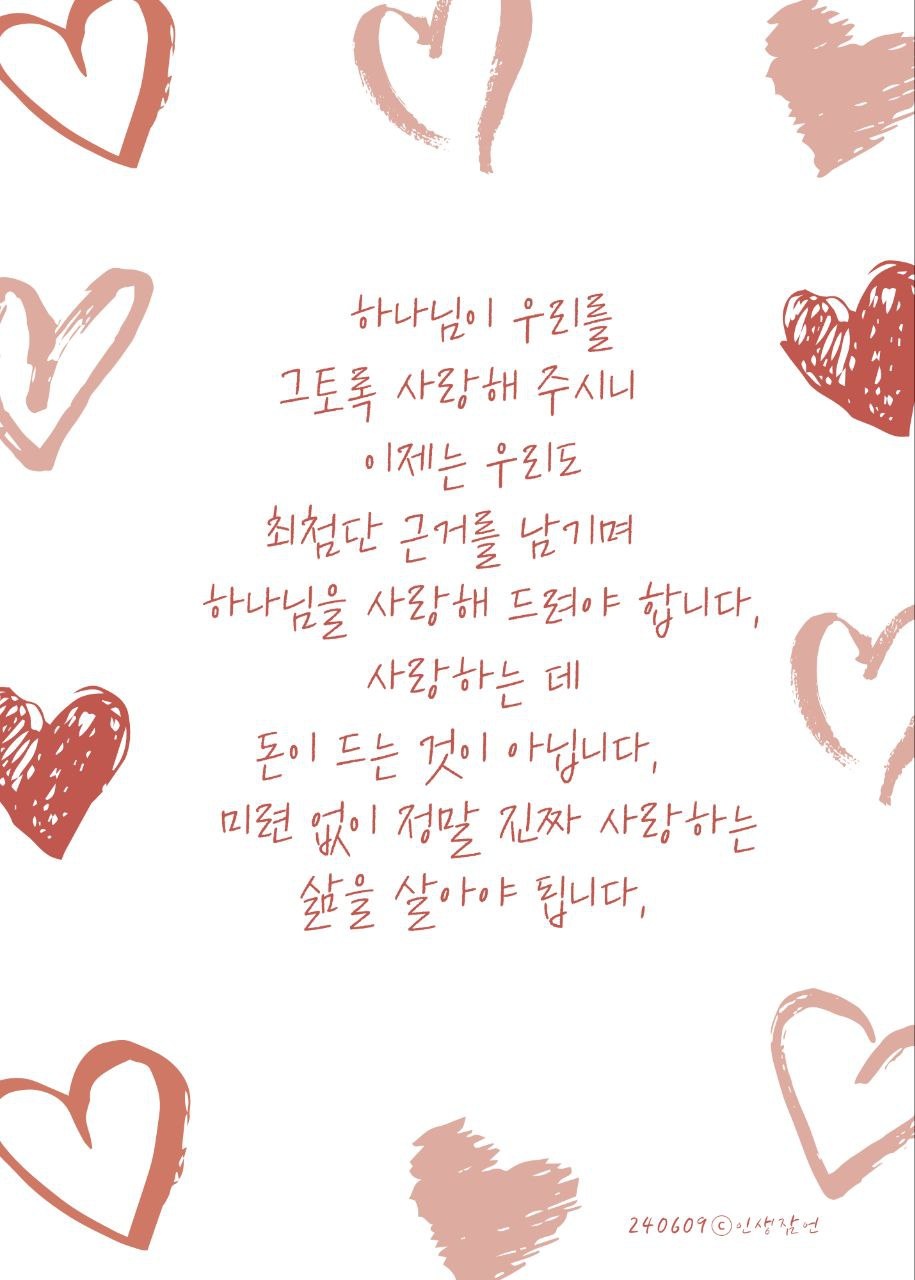 하나님이 우리를
그토록 사랑해 주시니
이제는 우리도
최첨단 근거를 남기며
하나님을 사랑해 드려야 합니다,
사랑하는 데
돈이 드는 것이 아닙니다,
미련 없이 정말 진짜 사랑하는
삶을 살아야 됩니다,
240609ⓒ인생잠언